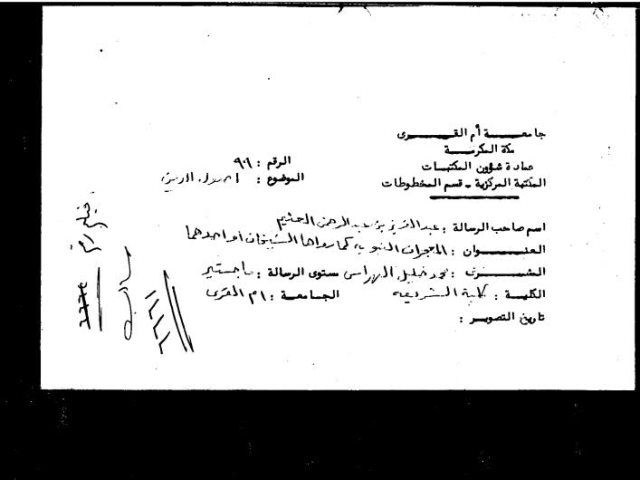 جامعة أم القرى
مكة المكرمة
عمادة شؤون المكتبات
المكتبة المركزية - قسم المخطوطات
الرقم : ٩٩
الموضوع :
اسم صاحب الرسالة : عبد العزيز بن عبد الرحمن العثيم
العنوان : المعجزات النبوية كما رواها الشيخان أو احدهما
المشرف : محمد خليل الهراس مستوى الرسالة : ماجستير
الكلية : كلية الشريعة الجامعة : ام القرى
تاريخ التصوير :